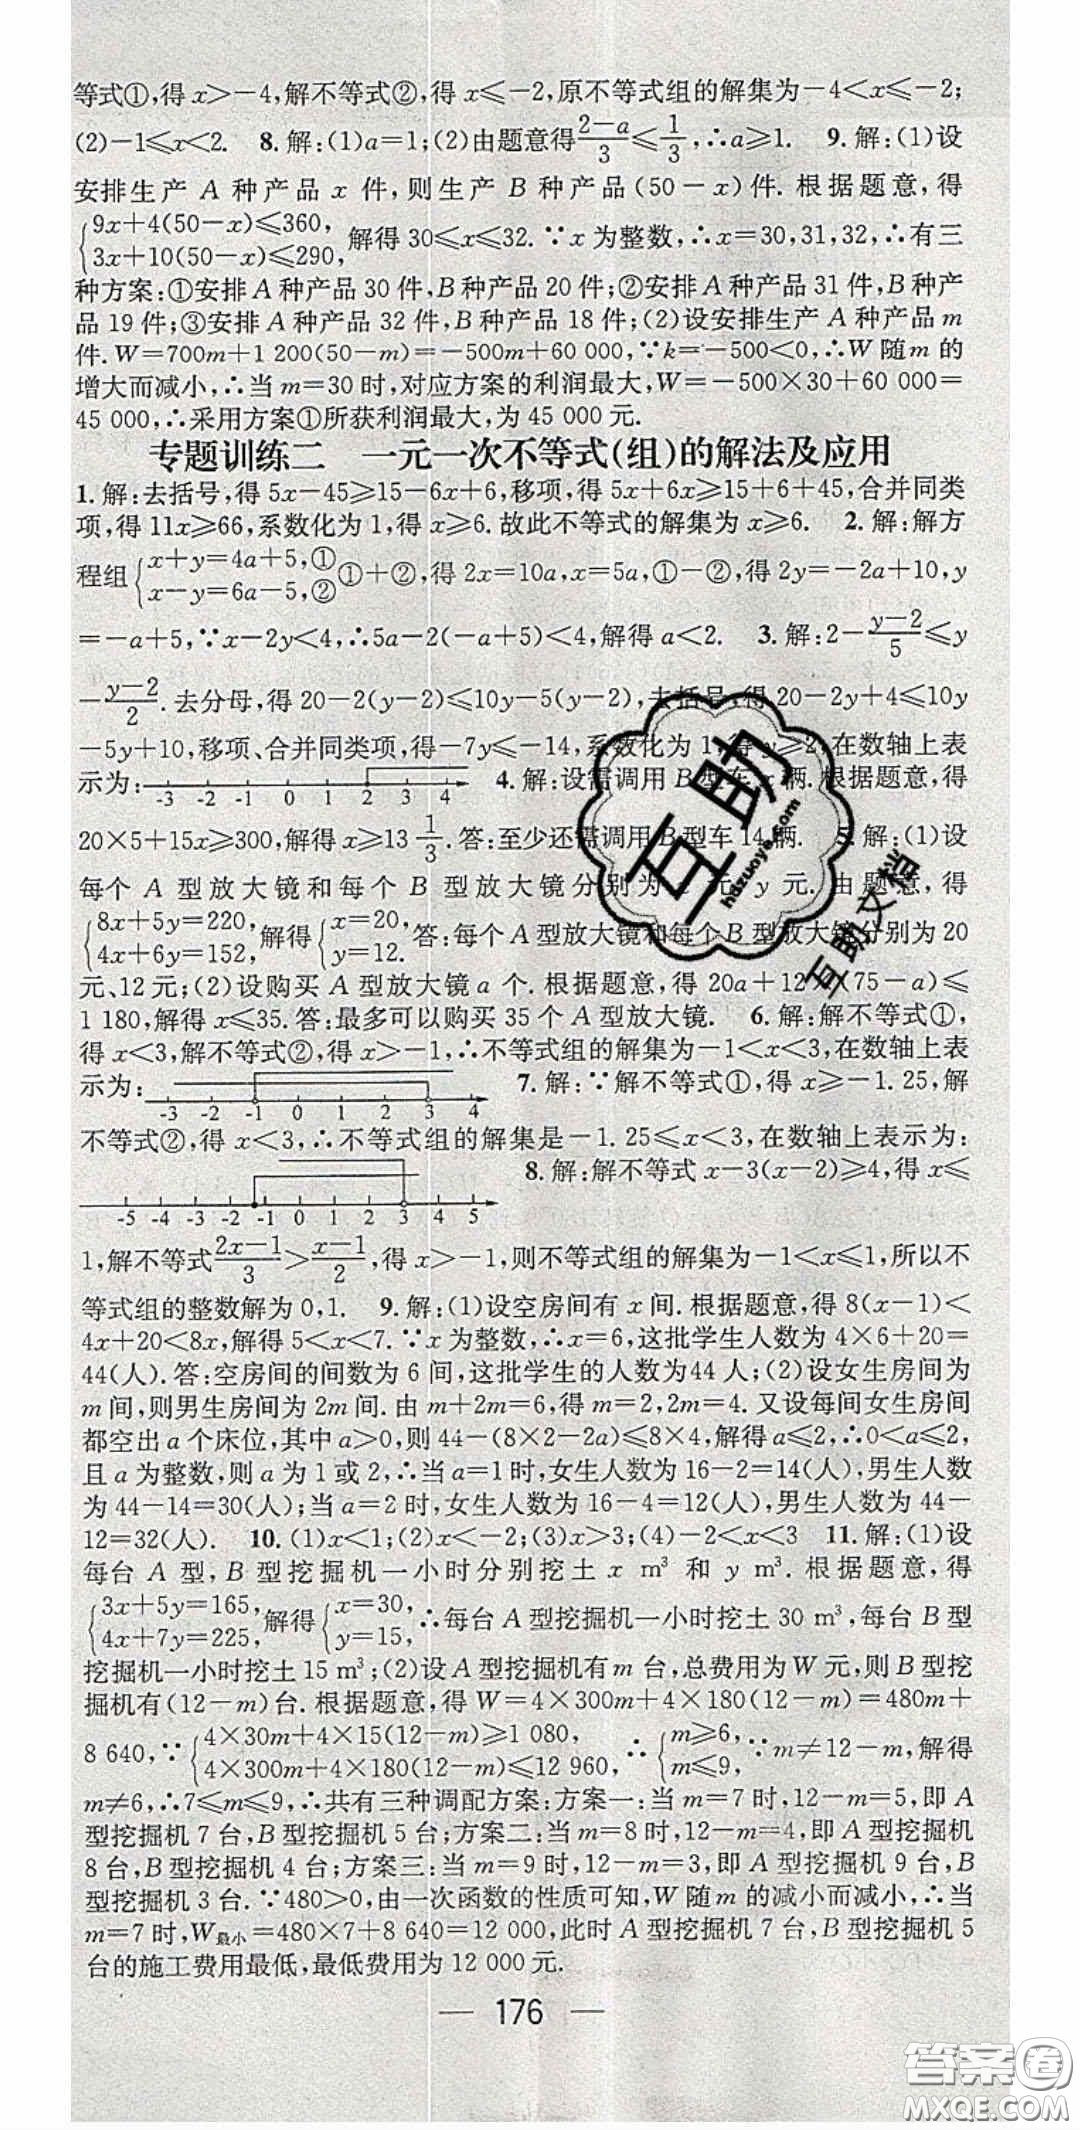 等式①,得 x>−4,解不等式②,得 x⩽−2,原不等式组的解集为−4<x⩽−2;
(2)−1⩽x<2. 8. 解:(1)a=1;(2)由题意得(2−a)/3⩽1/3,∴a⩾1. 9. 解:(1)设
安排生产 A 种产品 x 件,则生产 B 种产品(50−x)件. 根据题意,得
{9x+4(50−x)⩽360,
3x+10(50−x)⩽290, 解得 30⩽x⩽32. ∵x 为整数,∴x=30,31,32,∴有三
种方案:①安排 A 种产品 30 件,B 种产品 20 件;②安排 A 种产品 31 件,B 种产
品 19 件;③安排 A 种产品 32 件,B 种产品 18 件;(2)设安排生产 A 种产品 m
件. W=700m+1 200(50−m)=−500m+60 000,∵k=−500<0,∴W 随 m 的
增大而减小,∴当 m=30 时,对应方案的利润最大,W=−500×30+60 000=
45 000,∴采用方案①所获利润最大,为 45 000 元.
专题训练二 一元一次不等式(组)的解法及应用
1. 解:去括号,得 5x−45⩾15−6x+6,移项,得 5x+6x⩾15+6+45,合并同类
项,得 11x⩾66,系数化为 1,得 x⩾6. 故此不等式的解集为 x⩾6. 2. 解:解方
程组{x+y=4a+5,①
x−y=6a−5,②①+②,得 2x=10a,x=5a,①−②,得 2y=−2a+10,y
=−a+5,∵x−2y<4,∴5a−2(−a+5)<4,解得 a<2. 3. 解:2−(y−2)/5⩽y
−(y−2)/2. 去分母,得 20−2(y−2)⩽10y−5(y−2),去括号,得 20−2y+4⩽10y
−5y+10,移项、合并同类项,得−7y⩽−14,系数化为 1,得 y⩾2,在数轴上表
示为: -3 -2 -1 0 1 2 3 4 4. 解:设需调用 B 型车 x 辆. 根据题意,得
20×5+15x⩾300,解得 x⩾13 1/3. 答:至少还需调用 B 型车 14 辆. 5. 解:(1)设
每个 A 型放大镜和每个 B 型放大镜分别为 x 元,y 元. 由题意,得
{8x+5y=220,
4x+6y=152,解得{x=20,
y=12. 答:每个 A 型放大镜和每个 B 型放大镜分别为 20
元、12 元;(2)设购买 A 型放大镜 a 个. 根据题意,得 20a+12×(75−a)⩽
1 180,解得 x⩽35. 答:最多可以购买 35 个 A 型放大镜. 6. 解:解不等式①,
得 x<3,解不等式②,得 x>−1,∴不等式组的解集为−1<x<3,在数轴上表
示为: -3 -2 -1 0 1 2 3 4 7. 解:∵解不等式①,得 x⩾−1. 25,解
不等式②,得 x<3,∴不等式组的解集是−1. 25⩽x<3,在数轴上表示为:
-5 -4 -3 -2 -1 0 1 2 3 4 5 8. 解:解不等式 x−3(x−2)⩾4,得 x⩽
1,解不等式(2x−1)/3>(x−1)/2,得 x>−1,则不等式组的解集为−1<x⩽1,所以不
等式组的整数解为 0,1. 9. 解:(1)设空房间有 x 间. 根据题意,得 8(x−1)<
4x+20<8x,解得 5<x<7. ∵x 为整数,∴x=6,这批学生人数为 4×6+20=
44(人). 答:空房间的间数为 6 间,这批学生的人数为44 人;(2)设女生房间为
m 间,则男生房间为 2m 间. 由 m+2m=6,得 m=2,2m=4. 又设每间女生房间
都空出 a 个床位,其中 a>0,则 44−(8×2−2a)⩽8×4,解得 a⩽2,∴0<a⩽2,
且 a 为整数,则 a 为 1 或 2,∴当 a=1 时,女生人数为 16−2=14(人),男生人数
为 44−14=30(人);当 a=2 时,女生人数为 16−4=12(人),男生人数为 44−
12=32(人). 10. (1)x<1;(2)x<−2;(3)x>3;(4)−2<x<3 11. 解:(1)设
每台 A 型,B 型挖掘机一小时分别挖土 x m³ 和 y m³. 根据题意,得
{3x+5y=165,
4x+7y=225,解得{x=30,
y=15,∴每台 A 型挖掘机一小时挖土 30 m³,每台 B 型
挖掘机一小时挖土 15 m³;(2)设 A 型挖掘机有 m 台,总费用为 W 元,则 B 型挖
掘机有(12−m)台. 根据题意,得 W=4×300m+4×180(12−m)=480m+
8 640,∵{4×30m+4×15(12−m)⩾1 080,
4×300m+4×180(12−m)⩽12 960, ∴{m⩾6,
m⩽9, ∵m≠12−m,解得
m≠6,∴7⩽m⩽9,∴共有三种调配方案;方案一:当 m=7 时,12−m=5,即 A
型挖掘机 7 台,B 型挖掘机 5 台;方案二:当 m=8 时,12−m=4,即 A 型挖掘机
8 台,B 型挖掘机 4 台;方案三:当 m=9 时,12−m=3,即 A 型挖掘机 9 台,B
型挖掘机 3 台. ∵480>0,由一次函数的性质可知,W 随 m 的减小而减小,∴当
m=7 时,W最小=480×7+8 640=12 000,此时 A 型挖掘机 7 台,B 型挖掘机 5
台的施工费用最低,最低费用为 12 000 元.
— 176 —
互助
hdzuoye.com
互助文档
答案卷
MXQE.COM